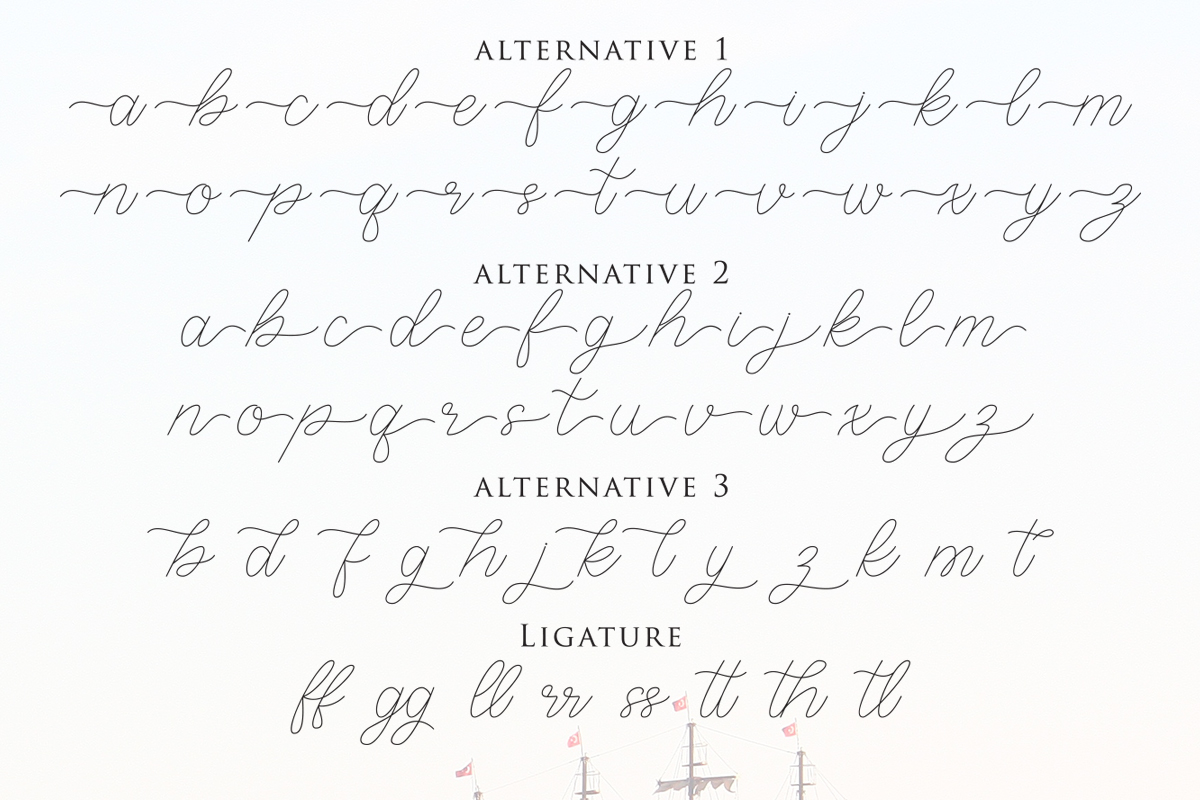 ALTERNATIVE 1
a b c d e f g h i j k l m
n o p q r s t u v w x y z
ALTERNATIVE 2
a b c d e f g h i j k l m
n o p q r s t u v w x y z
ALTERNATIVE 3
b d f g h j k l y z k m t
LIGATURE
ff gg ll rr ss tt th tl